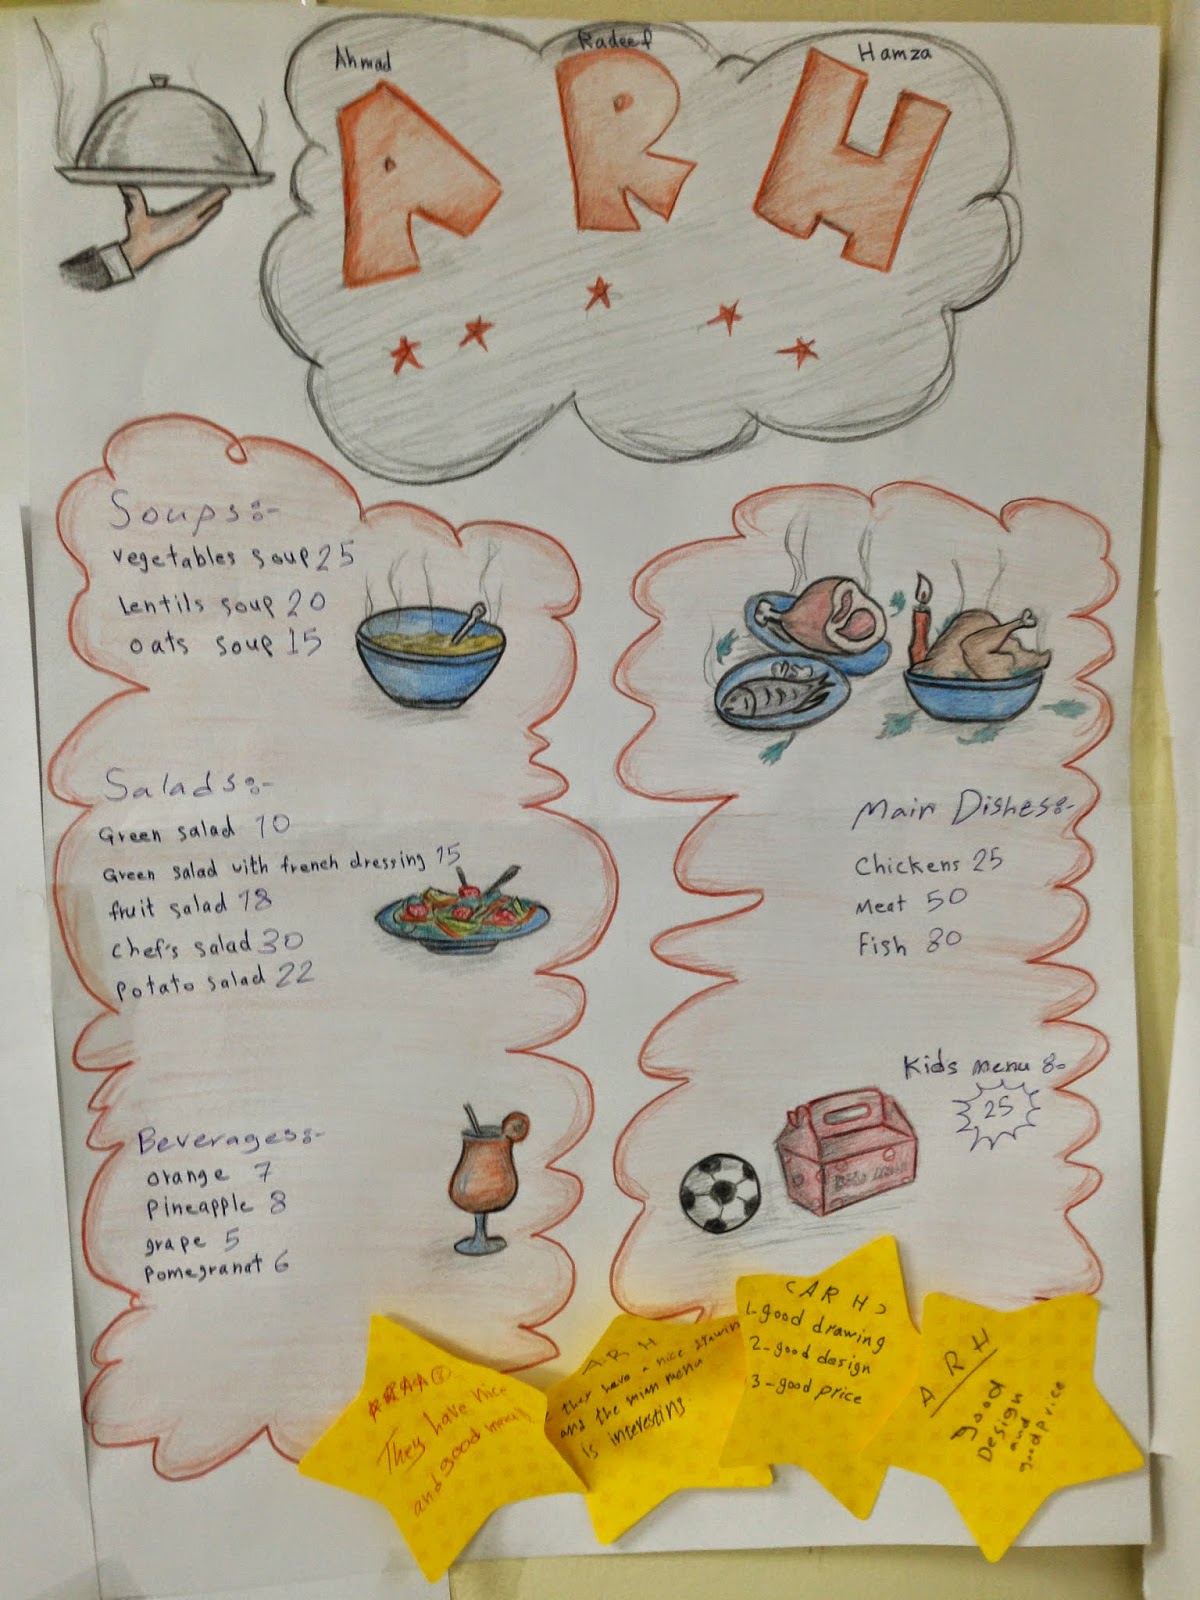 Ahmad
Radeef
Hamza
ARH
Soups:-
vegetables soup 25
Lentils soup 20
oats soup 15
Salads:-
Green salad 10
Green salad with french dressing 15
fruit salad 18
chef's salad 30
potato salad 22
Beverages:-
orange 7
pineapple 8
grape 5
pomegranat 6
Main Dishes:-
Chickens 25
Meat 50
Fish 30
Kids menu :-
25
They have nice
and good menu
A R H
they have a nice drawing
and the main menu
is interesting.
(ARH)
1-good drawing
2-good design
3-good price
A R H
good
Design
and
good price